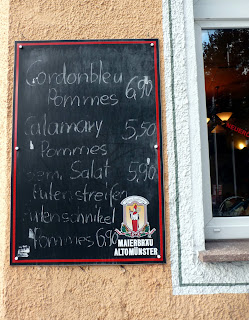 Cordonbleu
Pommes 6,90
Calamary 5,50
Pommes
gem. Salat 5,90
Putenstreifen
Putenschnikel
Pommes 6,90
MAIERBRÄU
ALTOMÜNSTER